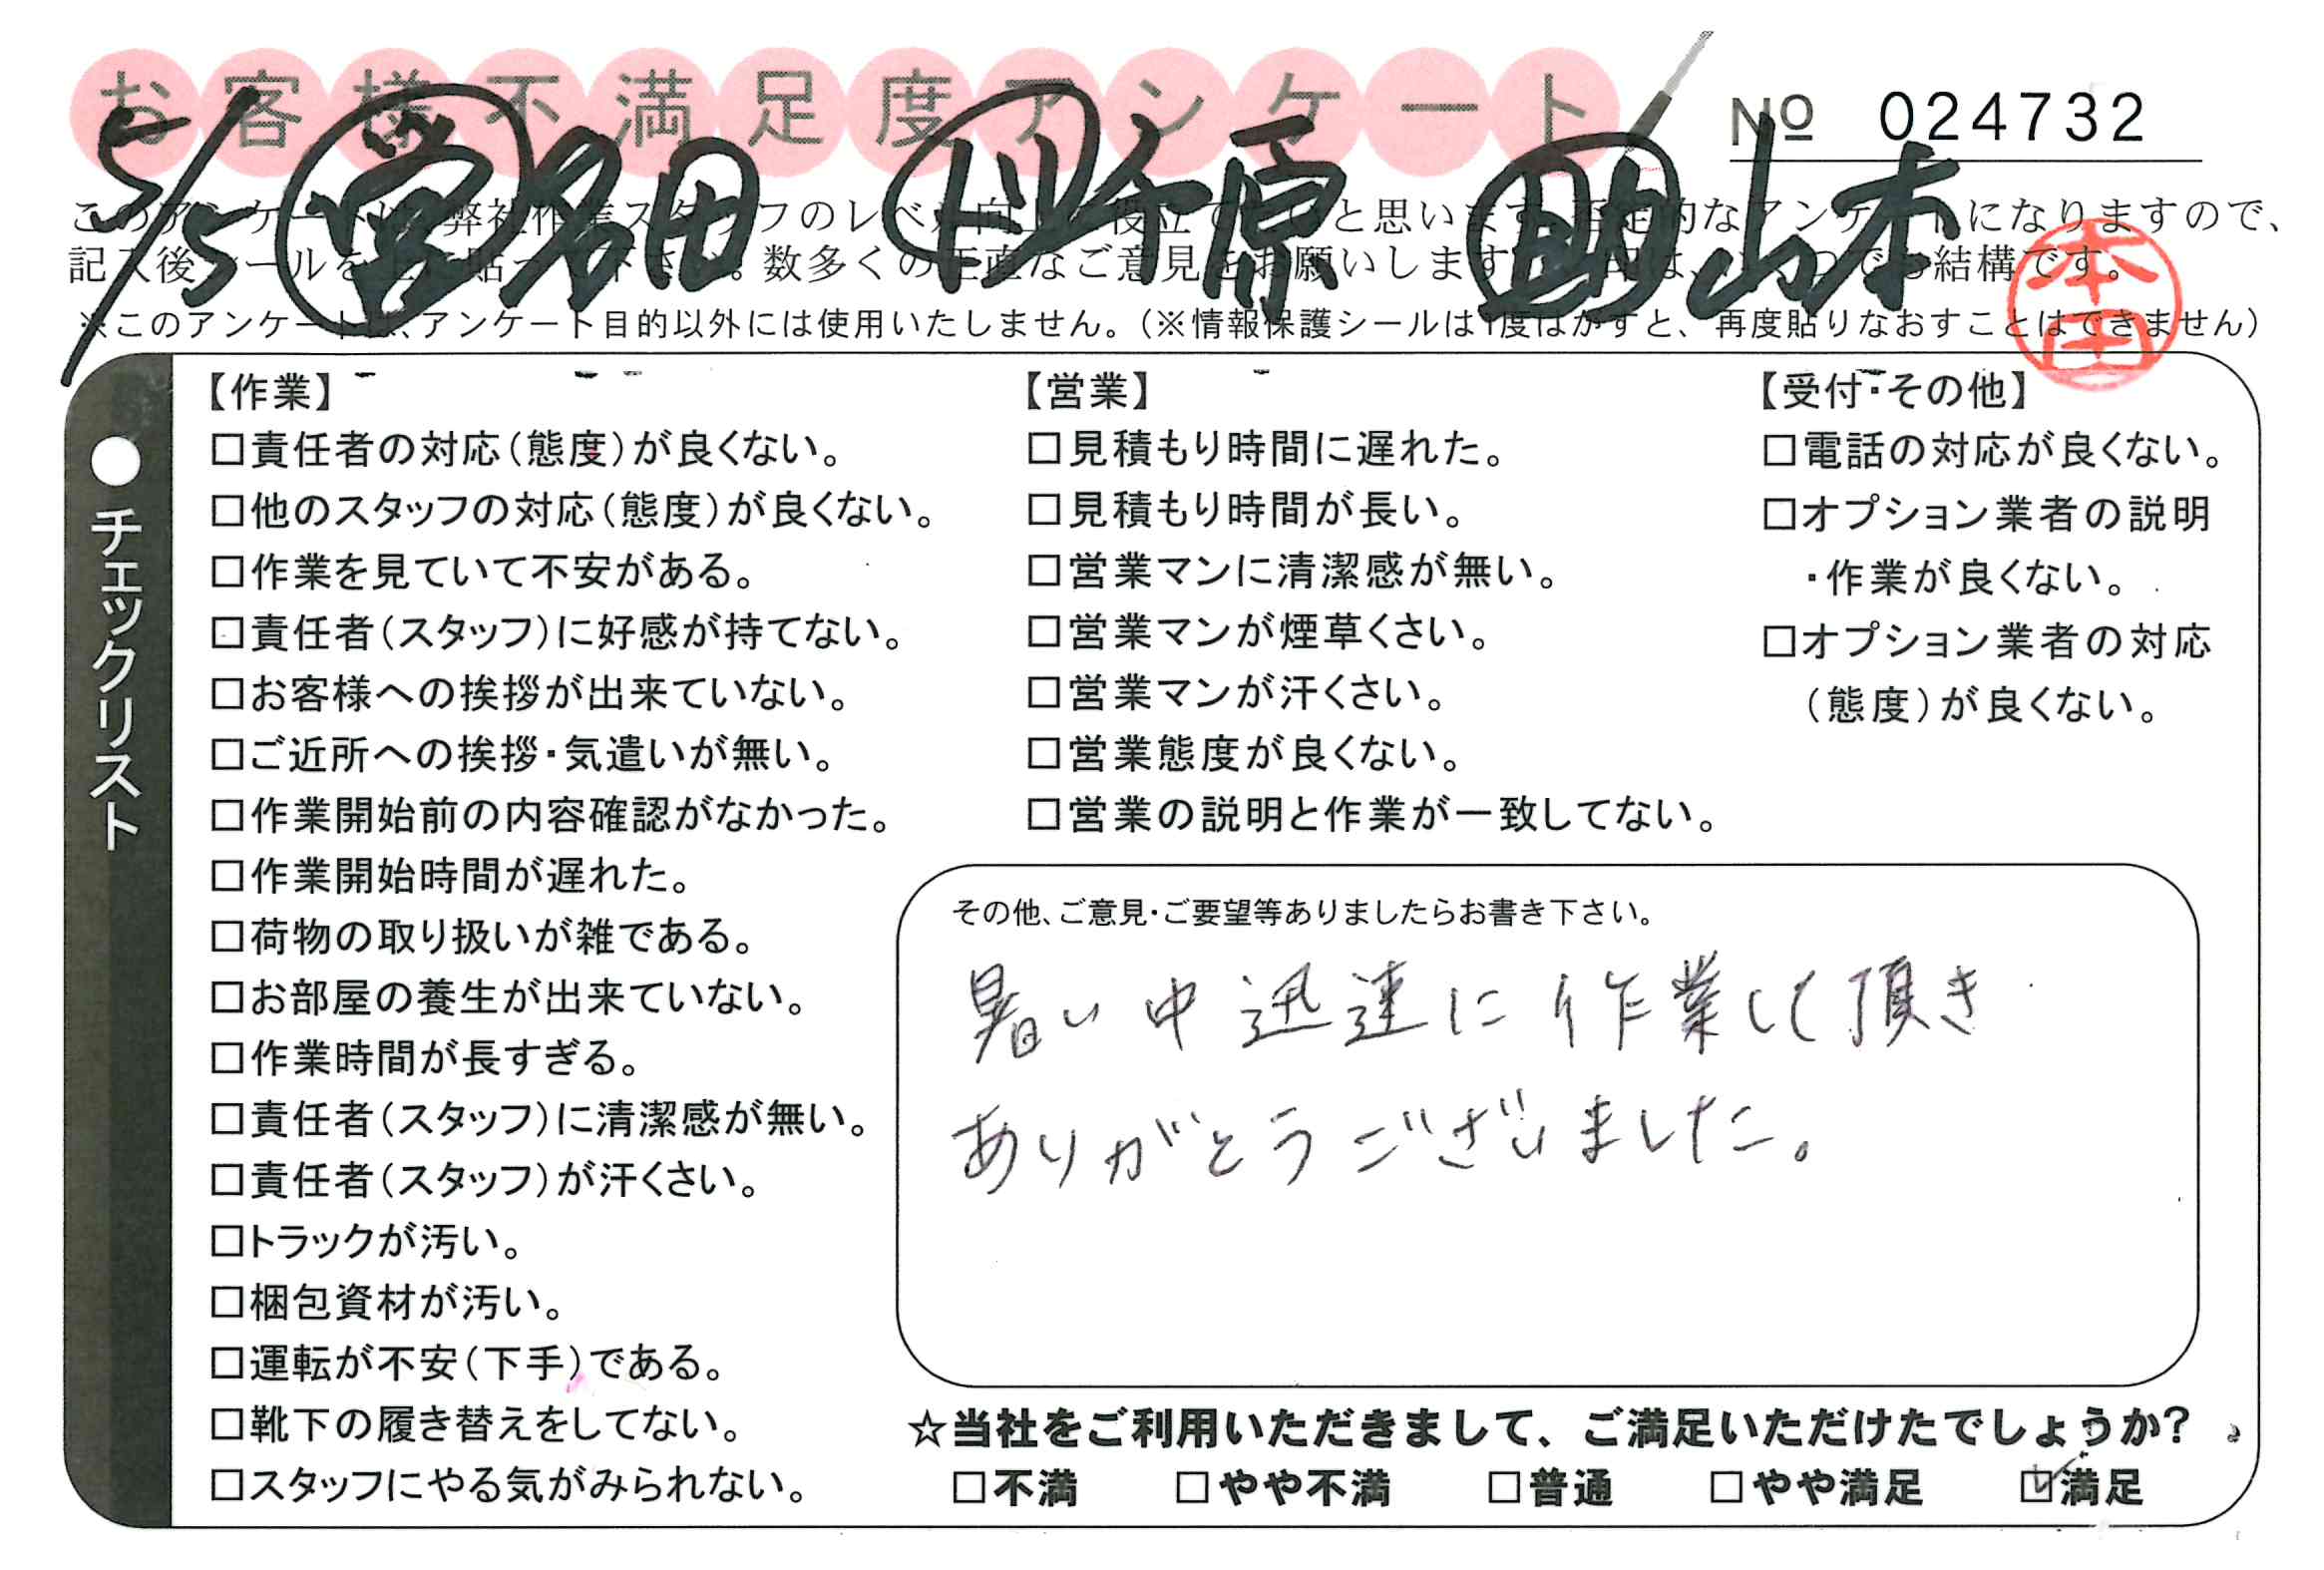 お客様不満足度アンケート
№ 024732
5/5 営 名田 リ 千原 助 山本
このアンケートは、弊社作業スタッフのレベル向上に役立てたいと思います。否定的なアンケートになりますので、
記入後シールを上に貼って下さい。数多くの正直なご意見をお願いします。
結構です。
※このアンケートは、アンケート目的以外には使用いたしません。（※情報保護シールは1度はがすと、再度貼りなおすことはできません）
本田
●チェックリスト
【作業】
□責任者の対応（態度）が良くない。
□他のスタッフの対応（態度）が良くない。
□作業を見ていて不安がある。
□責任者（スタッフ）に好感が持てない。
□お客様への挨拶が出来ていない。
□ご近所への挨拶・気遣いが無い。
□作業開始前の内容確認がなかった。
□作業開始時間が遅れた。
□荷物の取り扱いが雑である。
□お部屋の養生が出来ていない。
□作業時間が長すぎる。
□責任者（スタッフ）に清潔感が無い。
□責任者（スタッフ）が汗くさい。
□トラックが汚い。
□梱包資材が汚い。
□運転が不安（下手）である。
□靴下の履き替えをしてない。
□スタッフにやる気がみられない。
【営業】
□見積もり時間に遅れた。
□見積もり時間が長い。
□営業マンに清潔感が無い。
□営業マンが煙草くさい。
□営業マンが汗くさい。
□営業態度が良くない。
□営業の説明と作業が一致してない。
【受付・その他】
□電話の対応が良くない。
□オプション業者の説明
・作業が良くない。
□オプション業者の対応
（態度）が良くない。
その他、ご意見・ご要望等ありましたらお書き下さい。
暑い中迅速に作業して頂き
ありがとうございました。
☆当社をご利用いただきまして、ご満足いただけたでしょうか？
□不満 □やや不満 □普通 □やや満足 ☑満足